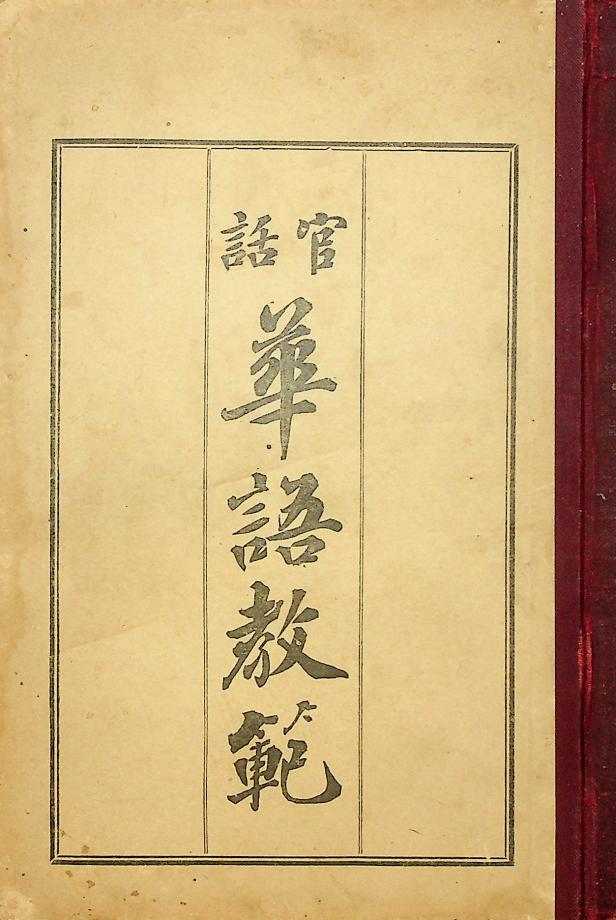 官話
華語教範